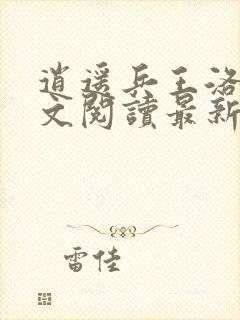 逍遥兵王洛
文閱讀最新
雷佳